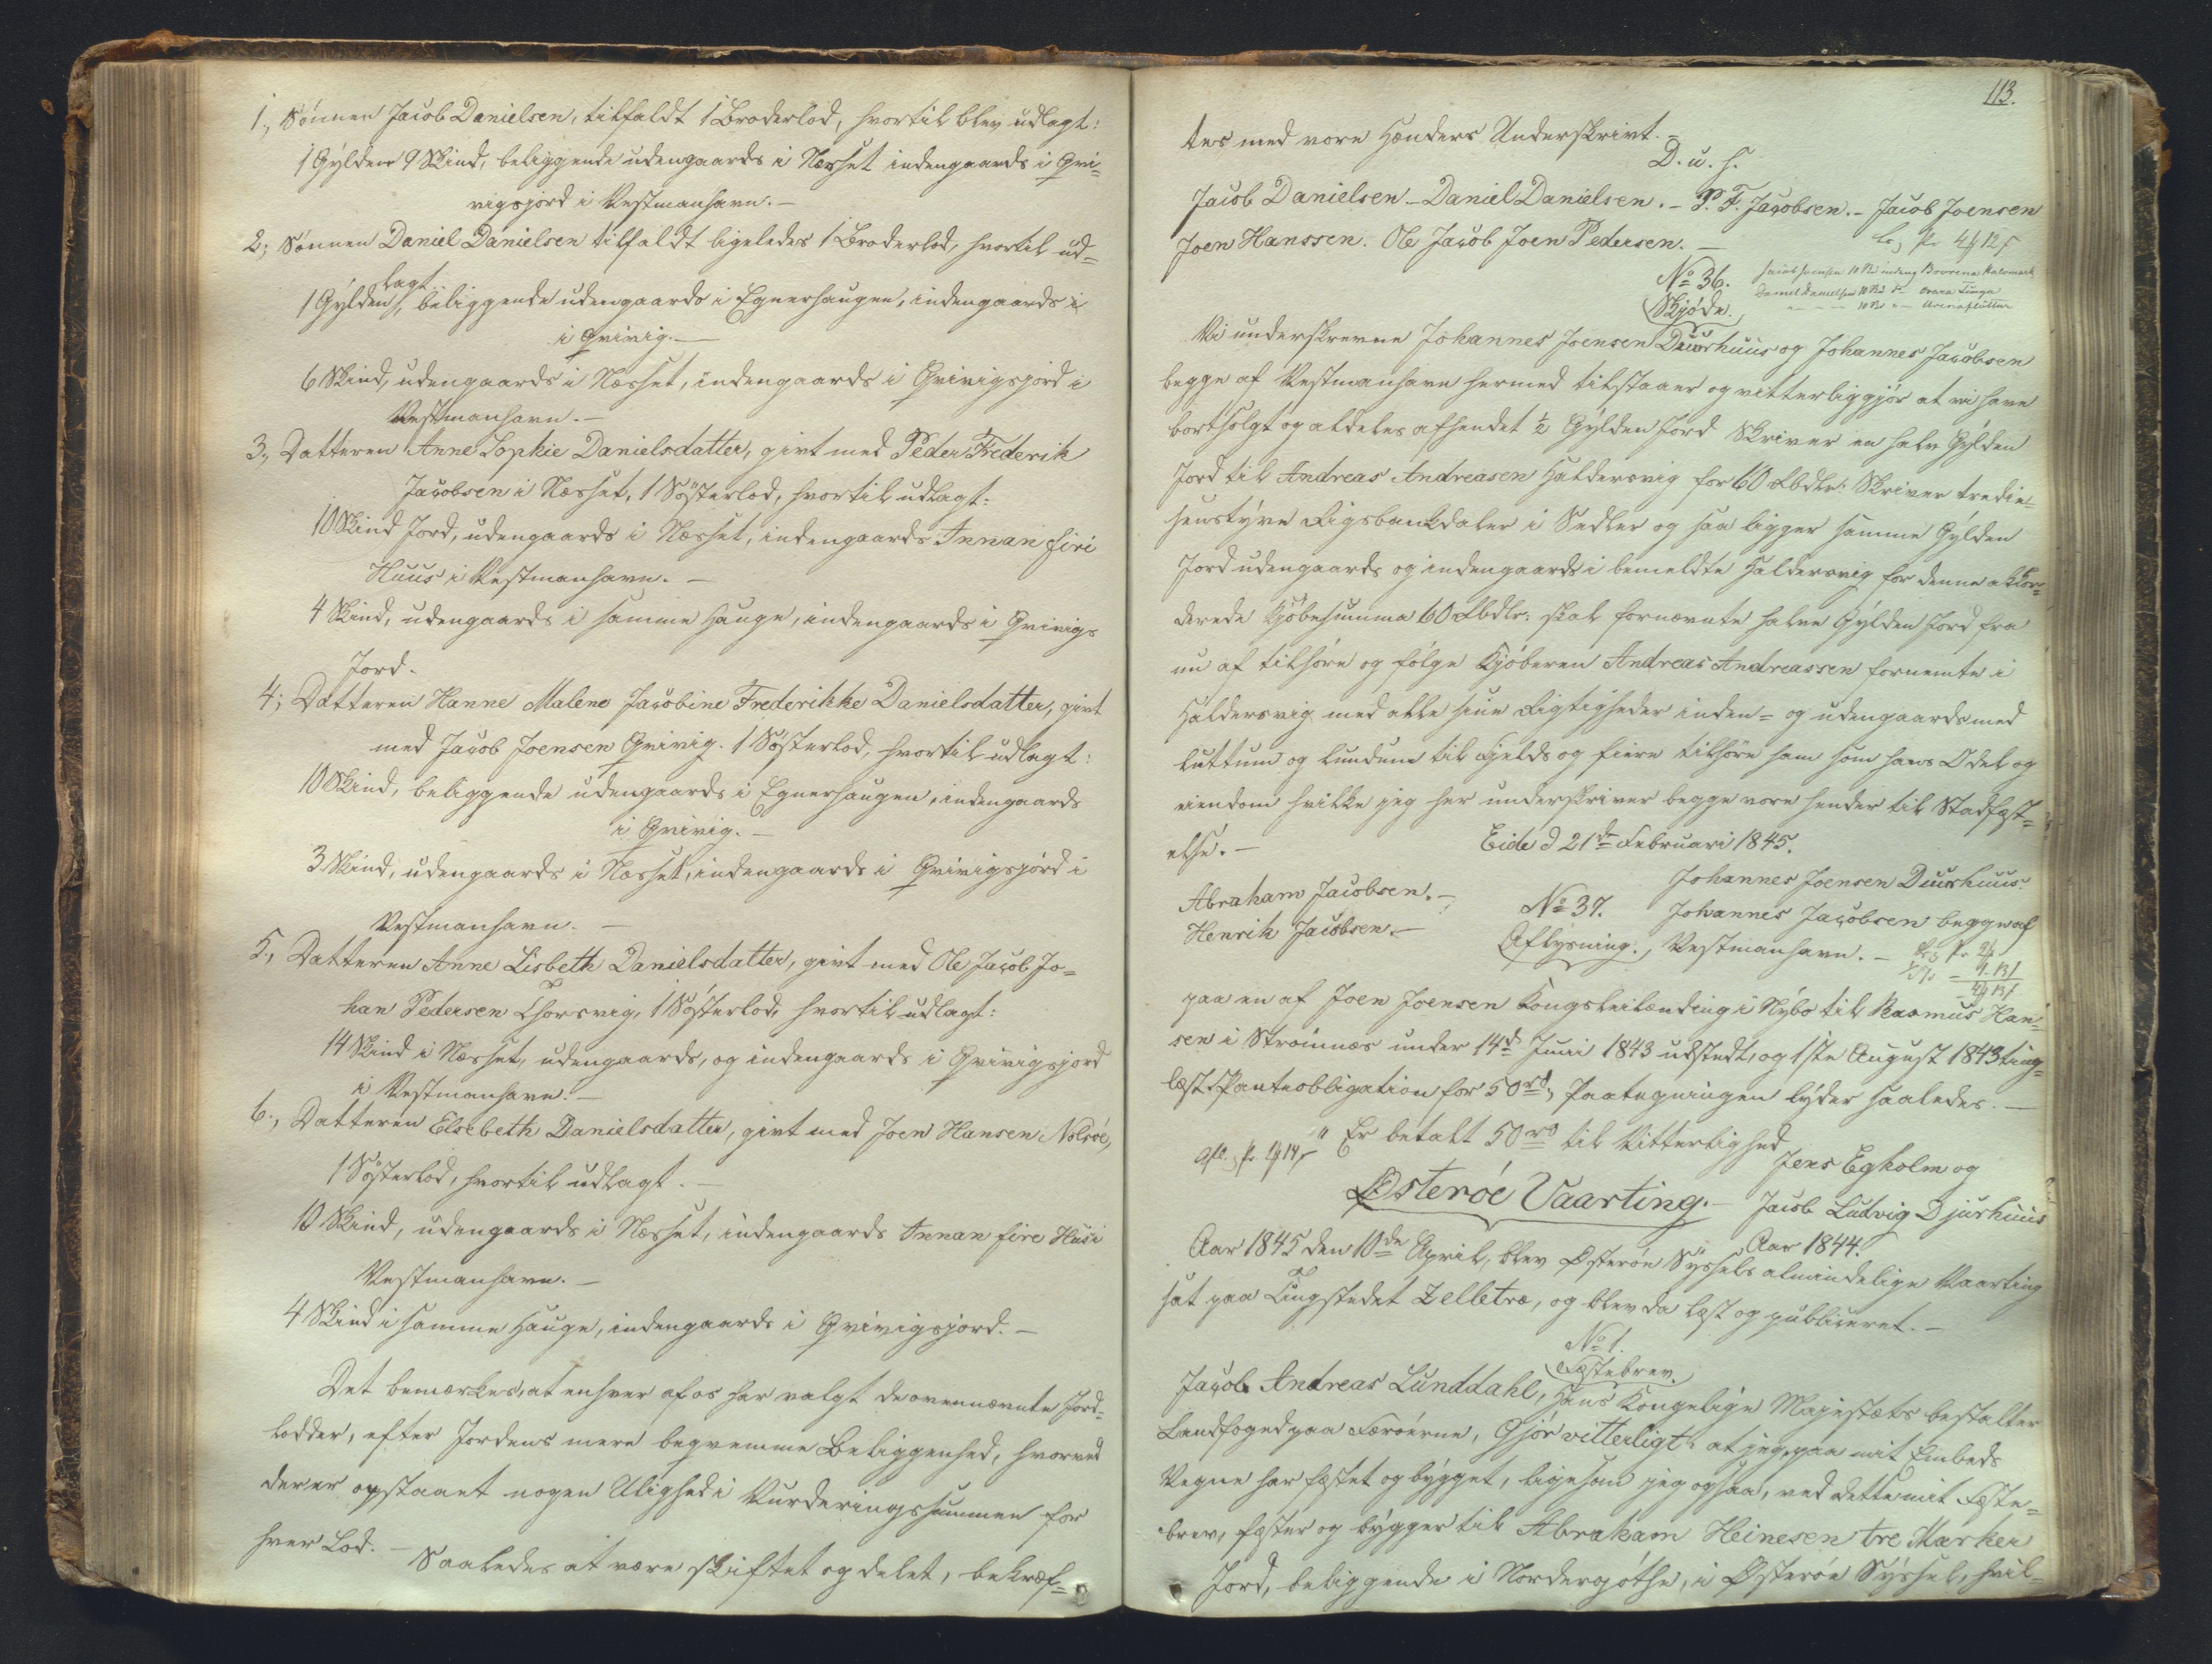 1., Sönnen Jacob Danielsen, tilfaldt 1 Broderlod, hvortil blev udlagt:
1 Gylden 9 Skind, beliggende udengaards i Næsset indengaards i Qvi-
vigsjord i Vestmanhavn. –
2; Sönnen Daniel Danielsen tilfaldt ligeledes 1 Broderlod, hvortil ud=
lagt
1 Gylden, beliggende udengaards i Egnershaugen, indengaards i
i Qvivig. –
6 Skind, udengaards i Næsset, indengaards i Qvivigsjord i
Vestmanhavn. –
3., Datteren Anne Sophie Danielsdatter, givt med Peder Frederik
Jacobsen i Næsset, 1 Sösterlod, hvortil udlagt:
10 Skind Jord, udengaards i Næsset, indengaards Innan firi
Huus i Vestmanhavn. –
4 Skind, udengaards i samme Hauge, indengaards i Qvivigs
Jord.
4; Datteren Hanne Malene Jacobine Frederikke Danielsdatter, givt
med Jacob Joensen Qvivig. 1 Sösterlod, hvortil udlagt:
10 Skind, beliggende udengaards i Egnershaugen, indengaards
i Qvivig. –
3 Skind, udengaards i Næsset, indengaards i Qvivigsjord i
Vestmanhavn. –
5., Datteren Anne Lisbeth Danielsdatter, givt med Ole Jacob Jo=
han Pedersen Thorsvig, 1 Sösterlod, hvortil udlagt:
14 Skind i Næsset, udengaards, og indengaards i Qvivigsjord
i Vestmanhavn. –
6., Datteren Elsebeth Danielsdatter, givt med Joen Hansen Nolsöe,
1 Sösterlod, hvortil udlagt. –
10 Skind, udengaards i Næsset, indengaards Innan fire Husi
Vestmanhavn. –
4 Skind i samme Hauge, indengaards i Qvivigsjord. –
Det bemærkes, at enhver af os har valgt de ovennævnte Jord=
lodder, efter Jordens mere beqvemme Beliggenhed, hvorved
derer opstaaet nogen Ulighed i Vurderingssummen for
hver Lod. – Saaledes at være skiftet og delet, bekræf=
113.
tes med vore Hænders Underskrivt. =
D. u. s.
Jacob Danielsen – Daniel Danielsen. – P. F. Jacobsen. – Jacob Joensen
Joen Hanssen. Ole Jacob Joen Pedersen. –
No 36.
Skjöde.
Vi underskrevne Johannes Joensen Duurhuus og Johannes Jacobsen
begge af Vestmanhavn hermed tilstaaer og vitterliggjör at vi have
bortsolgt og aldeles afhendet ½ Gylden Jord Skriver en halv Gylden
Jord til Andreas Andreasen Haldersvig for 60 Rbdlr: Skriver tredie
senstyve Rigsbankdaler i Sedler og saa ligger samme Gylden
Jord udengaards og indengaards i bemeldte Haldersvig for denne akkor=
derede Kjöbesumma 60 Rbdlr: skal fornævnte halve Gylden Jord fra
nu af tilhöre og fölge Kjöberen Andreas Andreassen fornemte i
Haldersvig med alle sine Rigtigheder inden= og udengaards med
luttum og lundum til Fjelds og fiere tilhöre ham som hans Odel og
eiendom hvilke jeg her underskriver begge vore hender til Stadfæst=
else. –
Eide d 21de Februari 1845.
Johannes Joensen Duurhuus.
Abraham Jacobsen. –
Henrik Jacobsen. –
No 37.
Johannes Jacobsen begge af
Aflysning., Vestmanhavn. –
paa en af Joen Joensen Kongsleilænding i Nybo til Rasmus Han=
sen i Strömnæs under 14de Juni 1843 udstedt, og 1ste August 1843 ting=
læst Panteobligation for 50 rd, Paategningen lyder saaledes. –
" Er betalt 50 rd til Vitterlighed
Jens Egholm og
Österöe Vaarting. – Jacob Ludvig Djurhuus
Aar 1844.
Aar 1845 den 10de April, blev Österöe Syssels almindelige Vaarting
sat paa Tingstedet Zelletræ, og blev da læst og publiceret. –
No 1.
Fæstebrev.
Jacob Andreas Lunddahl, Hans Kongelige Majestæts bestalter
Landfoged paa Færöerne, Gjör vitterligt: at jeg, paa mit Embeds
Vegne har fæstet og bygget, ligesom jeg ogsaa, ved dette mit Fæste=
brev, fæster og bygger til Abraham Heinesen tre Marker
Jord, beliggende i Nordergöthe, i Österöe Syssel, hvil=